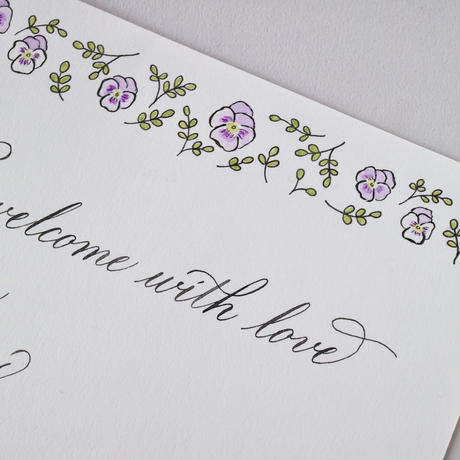 welcome with love